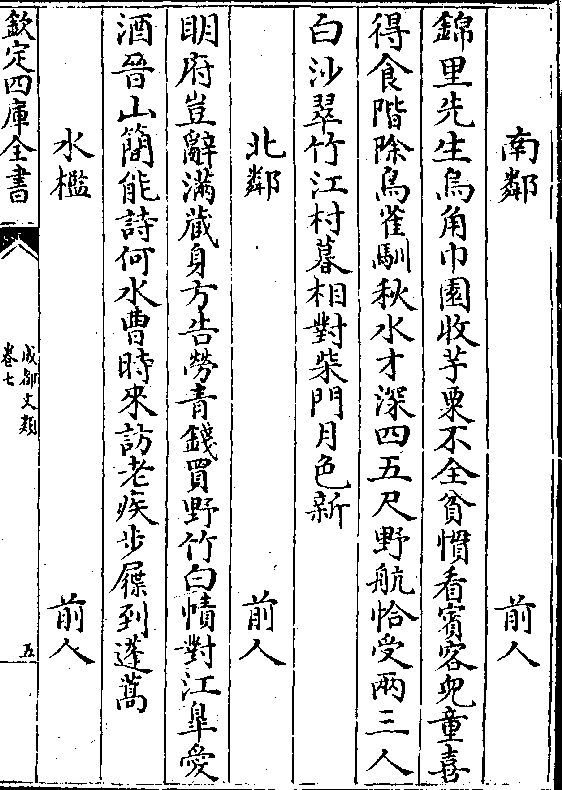 南鄰　前人
錦里先生烏角巾園收芋栗不全貧慣看賓客兒童喜
得食階除鳥雀馴秋水才深四五尺野航恰受兩三人
白沙翠竹江村暮相對柴門月色新
北鄰　前人
明府豈辭滿蔵身方告勞青錢買野竹白幘對江皐愛
酒晉山簡能詩何水曹時來訪老疾步屧到蓬蒿
水檻　前人
欽定四庫全書
成都文類
卷七
五